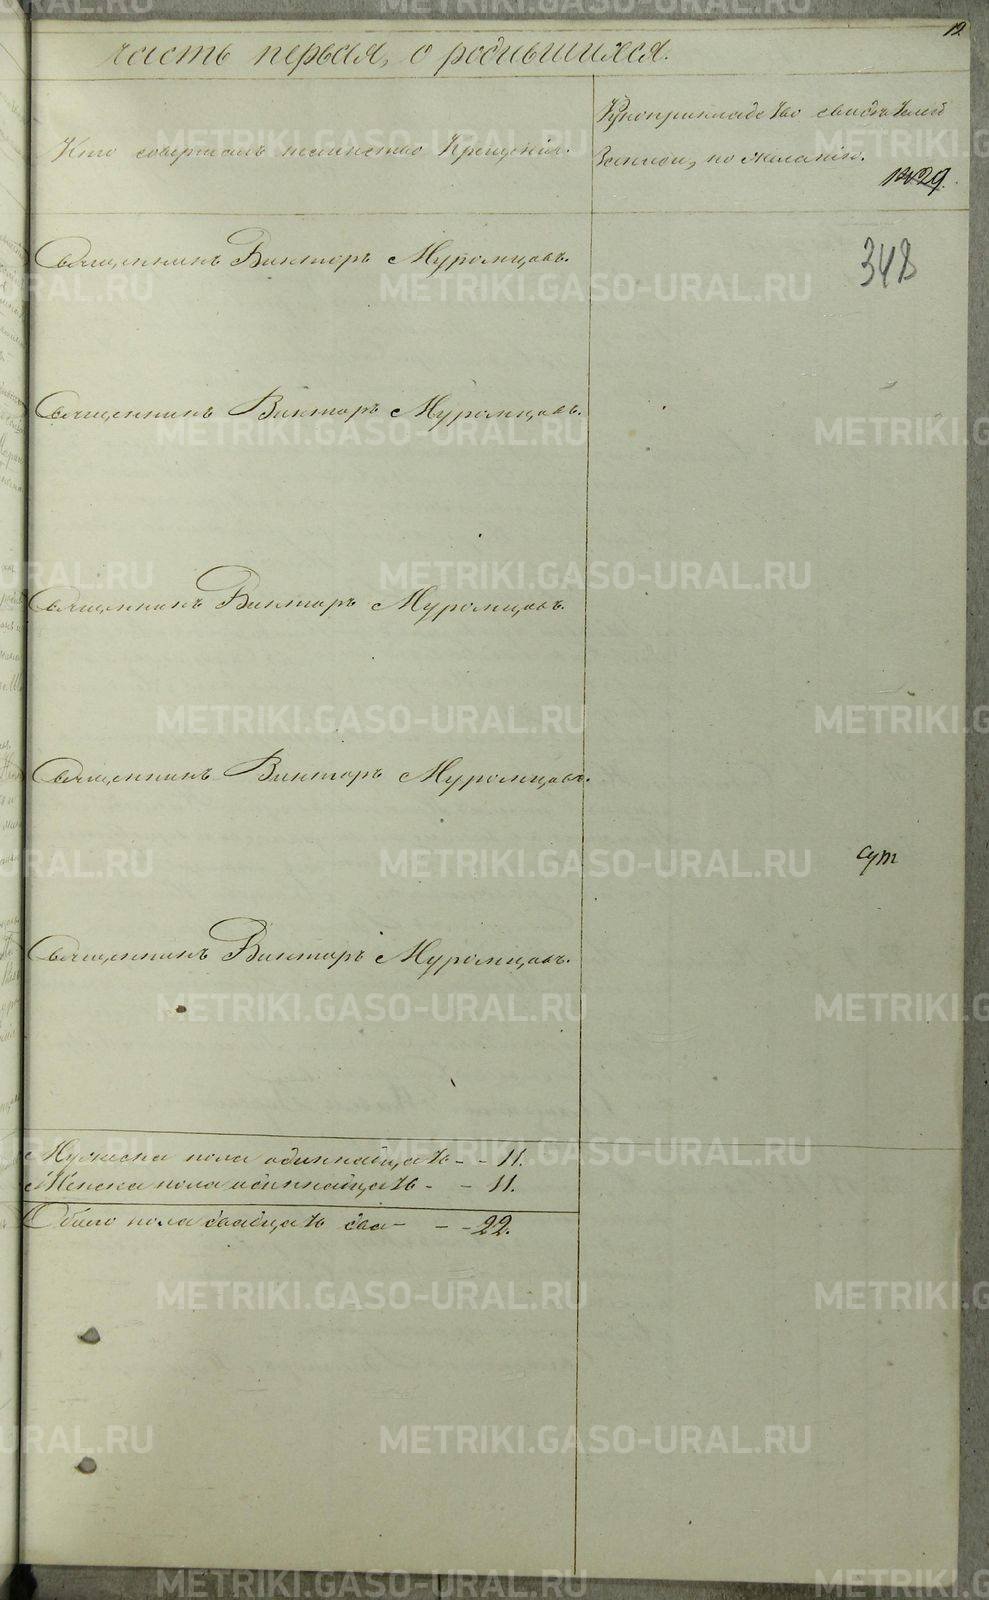 12
часть первая, о родившихся.
Кто совершалъ таинство Крещенія.
Рукоприкладство свидѣтелей
записи, по желанію.
29.
348
Священникъ Викторъ Муромцовъ.
Священникъ Викторъ Муромцовъ.
Священникъ Викторъ Муромцовъ.
Священникъ Викторъ Муромцовъ.
Священникъ Викторъ Муромцовъ.
Мужеска пола одиннадцать - - 11.
Женска пола одиннадцать - - 11.
Обоего пола двадцать два - - - 22.
METRIKI.GASO-URAL.RU